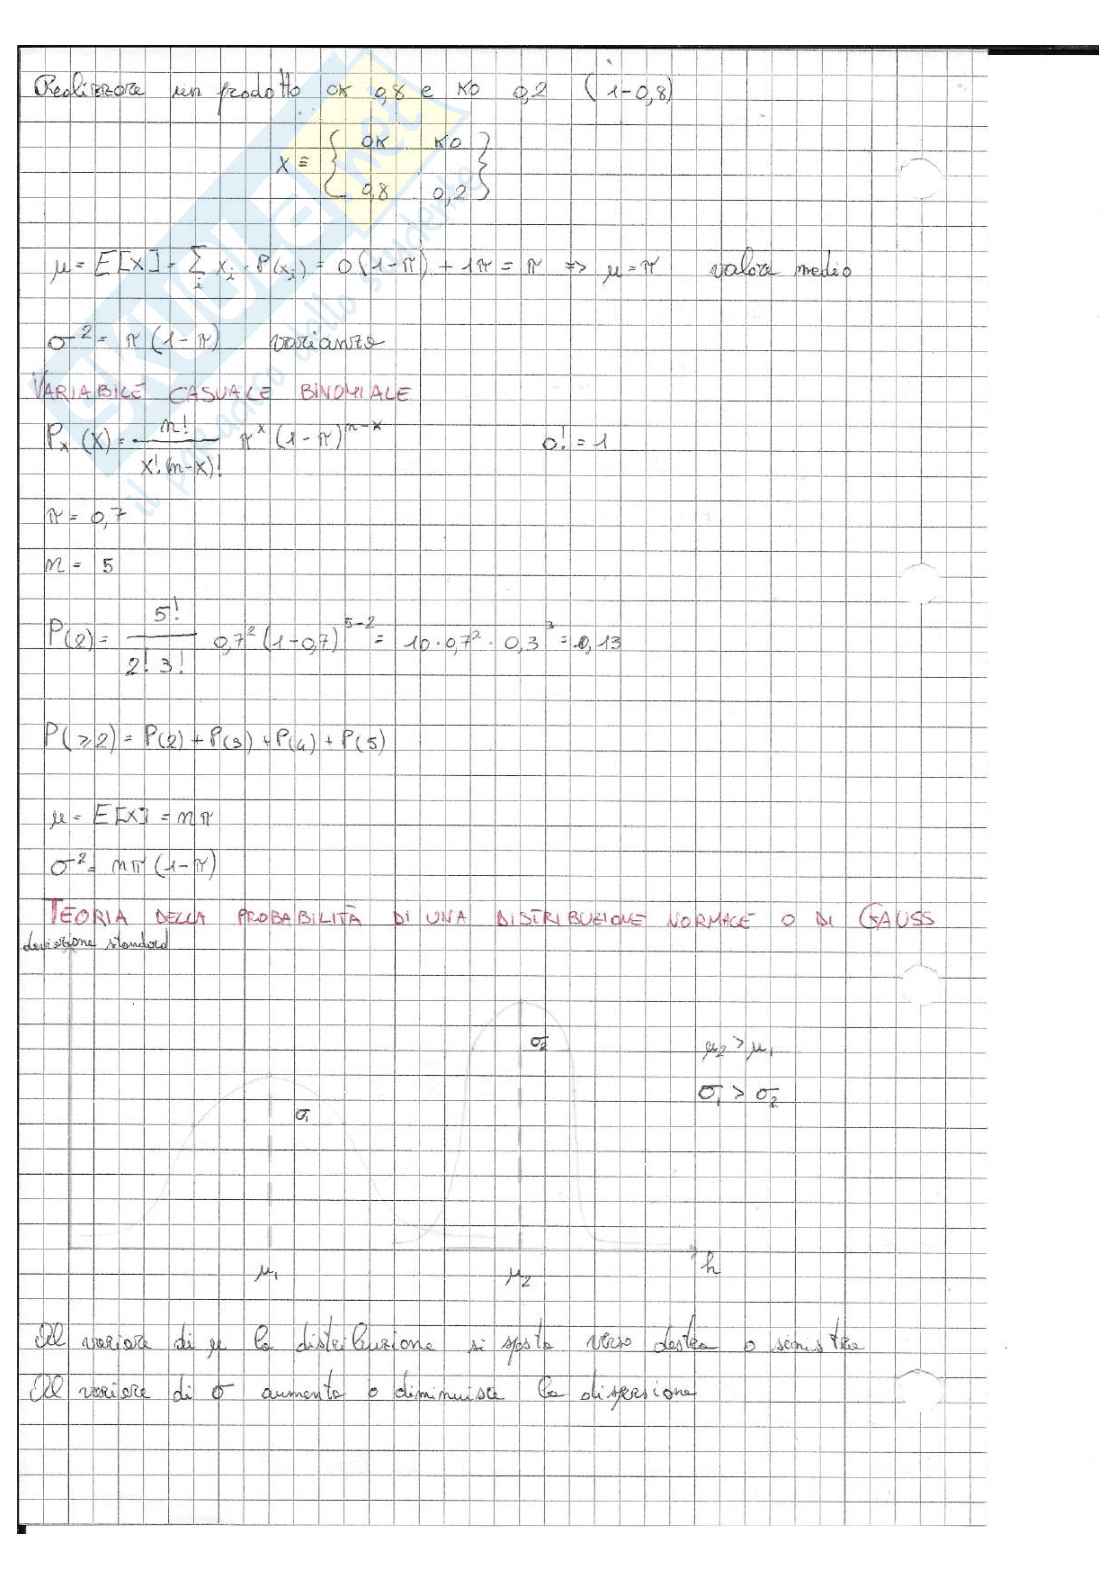 Realizzare un prodotto OK 0,8 e KO 0,2 (1-0,8)
X ≡ { OK KO
0,8 0,2 }
μ = E[X] = Σi xi · P(xi) = 0(1-π) + 1π = π => μ = π valore medio
σ² = π(1-π) varianza
VARIABILE CASUALE BINOMIALE
Px(X) = n! / x!(n-x)! π^x (1-π)^n-x 0! = 1
π = 0,7
n = 5
P(2) = 5! / 2! 3! 0,7² (1-0,7)^5-2 = 10·0,7²·0,3³ = 0,13
P(≥2) = P(2) + P(3) + P(4) + P(5)
μ = E[X] = nπ
σ² = nπ(1-π)
TEORIA DELLA PROBABILITÀ DI UNA DISTRIBUZIONE NORMALE O DI GAUSS
deviazione standard
σ2
μ2 > μ1
σ1 > σ2
σ1
μ1 μ2 h
Al variare di μ la distribuzione si sposta verso destra o sinistra
Al variare di σ aumenta o diminuisce la dispersione
SKUOLA.net
il paradiso dello studente